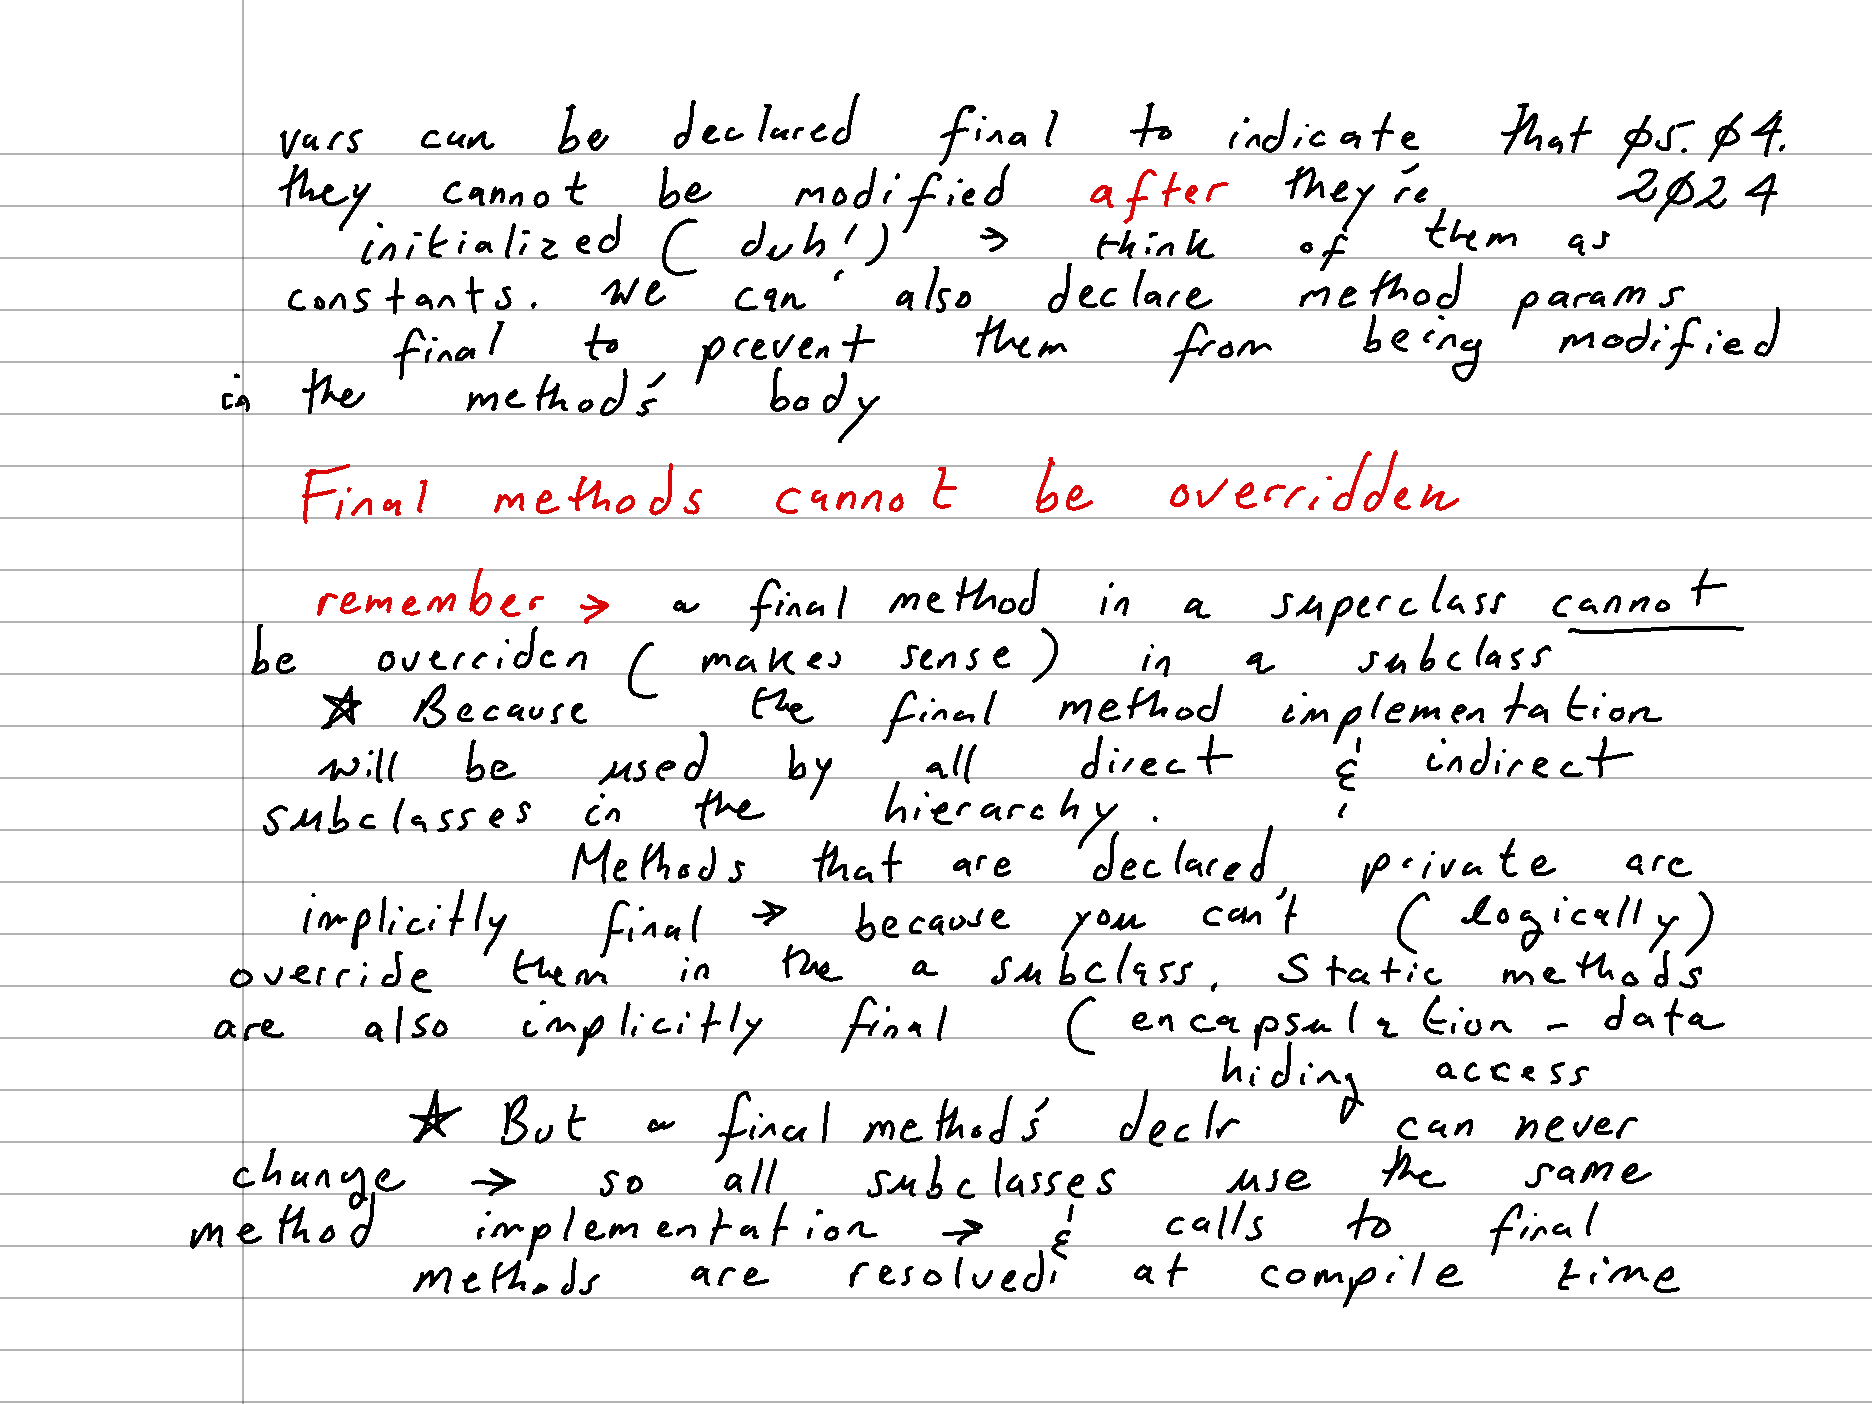 vars can be declared final to indicate that 05.04.
they cannot be modified after they're 2024
initialized (duh!) → think of them as
constants. We can also declare method params
final to prevent them from being modified
in the method's body
Final methods cannot be overridden
remember → a final method in a superclass cannot
be overriden (makes sense) in a subclass
☆ Because the final method implementation
will be used by all direct & indirect
subclasses in the hierarchy.
Methods that are declared private are
implicitly final → because you can't (logically)
override them in the a subclass. Static methods
are also implicitly final (encapsulation - data
hiding access
☆ But a final method's declr can never
change → so all subclasses use the same
method implementation → & calls to final
methods are resolved at compile time